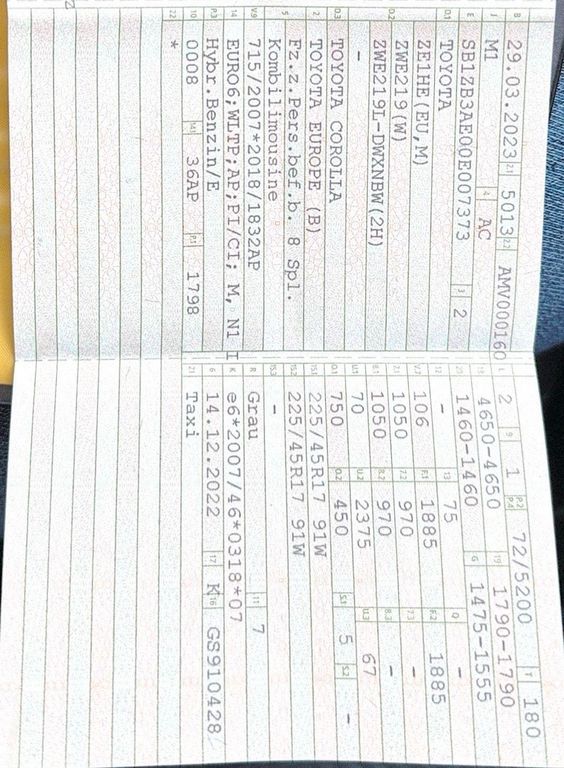 B 29.03.2023 2.1 5013 2.2 AMV000160
J M1 4 AC
E SB1ZB3AE00E007373 3 2
D.1 TOYOTA
ZE1HE(EU,M)
D.2 ZWE219(W)
ZWE219L-DWXNBW(2H)
–
D.3 TOYOTA COROLLA
2 TOYOTA EUROPE (B)
5 Fz.z.Pers.bef.b. 8 Spl.
Kombilimousine
V.9 715/2007*2018/1832AP
14 EURO6;WLTP;AP;PI/CI; M, N1 I
P.3 Hybr.Benzin/E
10 0008 14.1 36AP P.1 1798
22 *
L 2 9 1 P.2 P.4 72/5200 T 180
18 4650-4650 19 1790-1790
20 1460-1460 G 1475-1555
12 – 13 75 Q –
V.7 106 F.1 1885 F.2 1885
7.1 1050 7.2 970 7.3 –
8.1 1050 8.2 970 8.3 –
U.1 70 U.2 2375 U.3 67
O.1 750 O.2 450 S.1 5 S.2 –
15.1 225/45R17 91W
15.2 225/45R17 91W
15.3 –
R Grau 11 7
K e6*2007/46*0318*07
6 14.12.2022 17 K 16 GS910428
21 Taxi